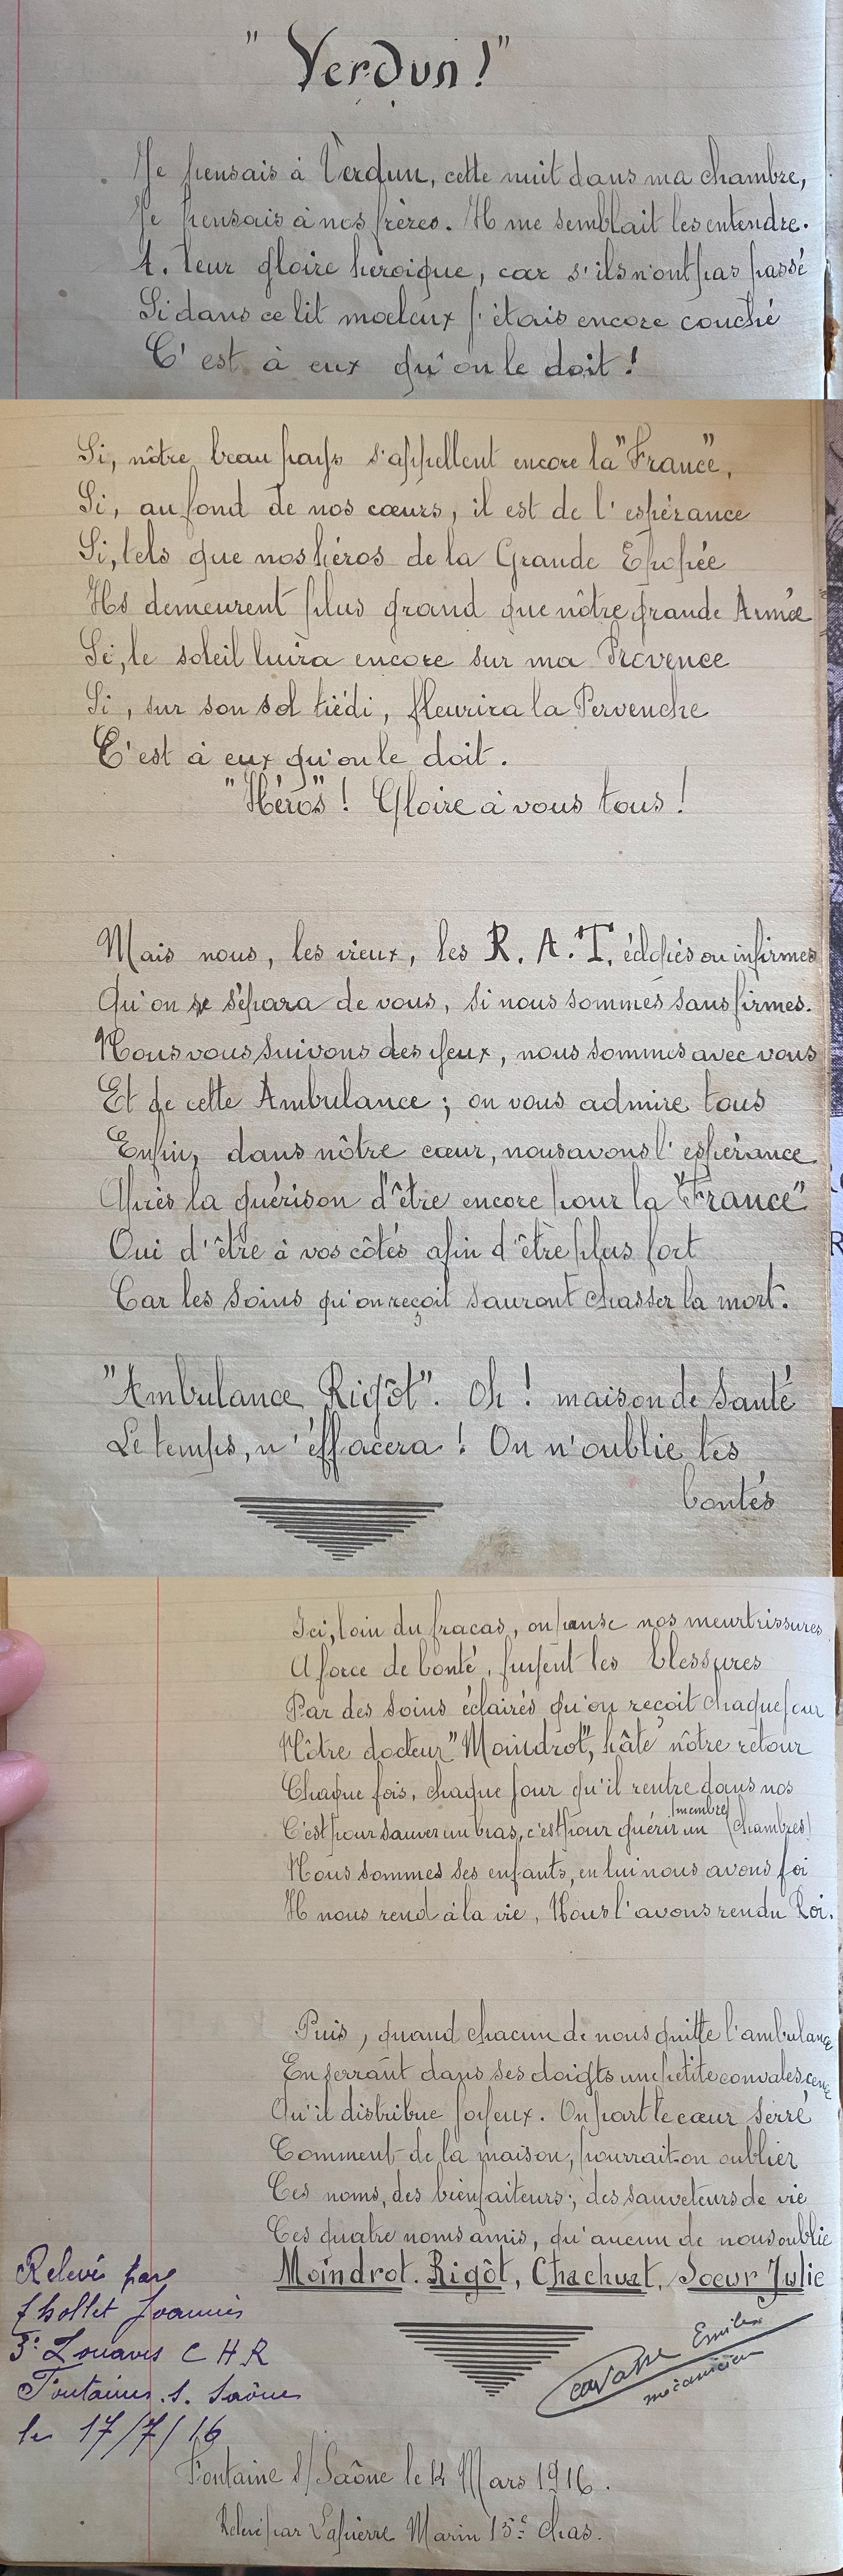 " Verdun ! "
Je pensais à Verdun, cette nuit dans ma chambre,
Je pensais à nos frères. Il me semblait les entendre.
A. leur gloire héroique, car s'ils n'ont pas passé
Si dans ce lit moeleux j'étais encore couché
C'est à eux qu'on le doit !
Si, nôtre beau pays s'appellent encore la "France",
Si, au fond de nos cœurs, il est de l'espérance
Si, tels que nos héros de la Grande Epopée
Ils demeurent plus grand que nôtre grande Armée
Si, le soleil luira encore sur ma Provence
Si, sur son sol tiédi, fleurira la Pervenche
C'est à eux qu'on le doit.
"Héros" ! Gloire à vous tous !
Mais nous, les vieux, les R. A. T. éclopés ou infirmes
Qu'on se sépara de vous, si nous sommes sans firmes.
Nous vous suivons des yeux, nous sommes avec vous
Et de cette Ambulance ; on vous admire tous
Enfin, dans nôtre cœur, nous avons l'espérance
Après la guérison d'être encore pour la "France"
Oui d'être à vos côtés afin d'être plus fort
Car les soins qu'on reçoit sauront chasser la mort.
"Ambulance Rigôt". Oh ! maison de Santé
Le temps, n'éffacera ! On n'oublie tes
bontés
Ici, loin du fracas, on panse nos meurtrissures
A force de bonté, fuient les blessures
Par des soins éclairés qu'on reçoit chaque jour
Nôtre docteur "Moindrot", hâte nôtre retour
Chaque fois, chaque jour qu'il rentre dans nos
C'est pour sauver un bras, c'est pour guérir un membre (chambres)
Nous sommes ses enfants, en lui nous avons foi
Il nous rend à la vie, Nous l'avons rendu Roi.
Puis, quand chacun de nous quitte l'ambulance
En serrant dans ses doigts une petite convalescence
Qu'il distribue joyeux. On part le cœur serré
Comment de la maison, pourrait-on oublier
Ces noms, des bienfaiteurs ; des sauveteurs de vie
Ces quatre noms amis, qu'aucun de nous oublie
Moindrot. Rigôt, Chachuat, Soeur Julie
Relevés par
Thollet Joannès
3e Zouaves C H R
Fontaines. s. Saône
le 17/7/16
Cavasse Emile
mécanicien
Fontaine s/Saône le 14 Mars 1916.
Relevé par Lapierre Marin 15e chas.